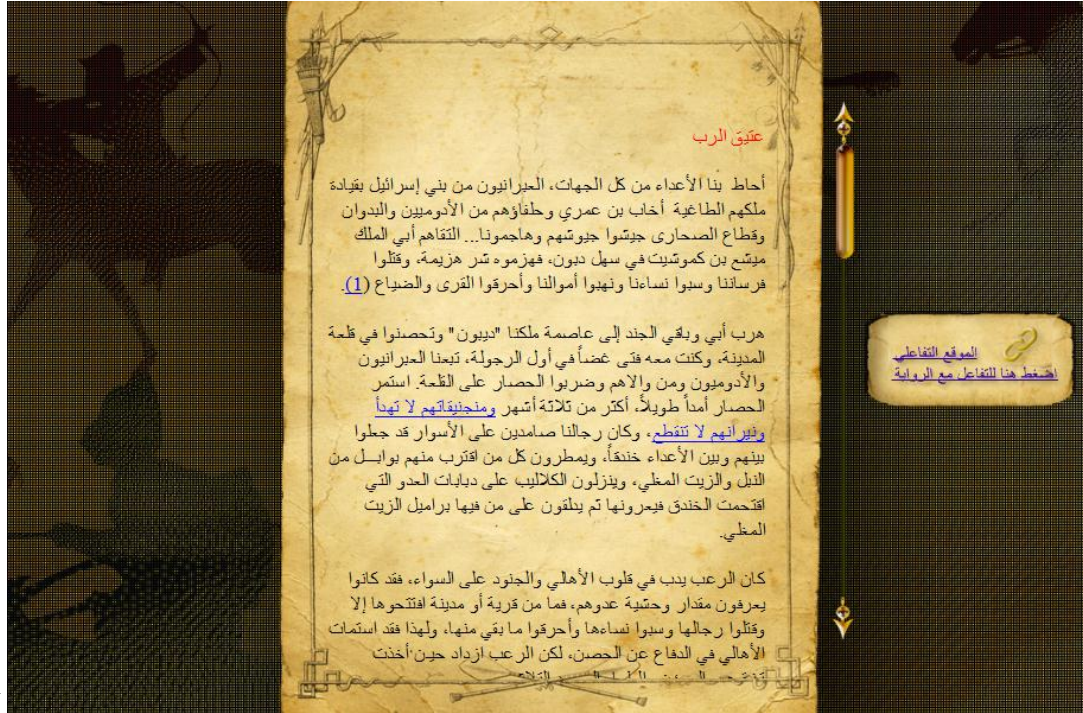 عتيق الرب
أحاط بنا الأعداء من كل الجهات، العبرانيون من بني إسرائيل بقيادة
ملكهم الطاغية أخاب بن عمري وحلفاؤهم من الأدوميين والبدوان
وقطاع الصحارى جيشوا جيوشهم وهاجمونا... التقاهم أبي الملك
ميشع بن كموشيت في سهل دبون، فهزموه شر هزيمة، وقتلوا
فرساننا وسبوا نساءنا ونهبوا أموالنا وأحرقوا القرى والضياع (1).
هرب أبي وباقي الجند إلى عاصمة ملكنا "ديبون" وتحصنوا في قلعة
المدينة، وكنت معه فتى غضاً في أول الرجولة، تبعنا العبرانيون
والأدوميون ومن والاهم وضربوا الحصار على القلعة. استمر
الحصار أمداً طويلاً، أكثر من ثلاثة أشهر ومنجنيقاتهم لا تهدأ
ونيرانهم لا تنقطع، وكان رجالنا صامدين على الأسوار قد جعلوا
بينهم وبين الأعداء خندقاً، ويمطرون كل من اقترب منهم بوابـــل من
النبل والزيت المغلي، وينزلون الكلاليب على دبابات العدو التي
اقتحمت الخندق فيعرونها ثم يدلقون على من فيها براميل الزيت
المغلي.
كان الرعب يدب في قلوب الأهالي والجنود على السواء، فقد كانوا
يعرفون مقدار وحشية عدوهم، فما من قرية أو مدينة افتتحوها إلا
وقتلوا رجالها وسبوا نساءها وأحرقوا ما بقي منها، ولهذا فقد استمات
الأهالي في الدفاع عن الحصن، لكن الرعب ازداد حين أخذت
الموقع التفاعلي
اضغط هنا للتفاعل مع الرواية